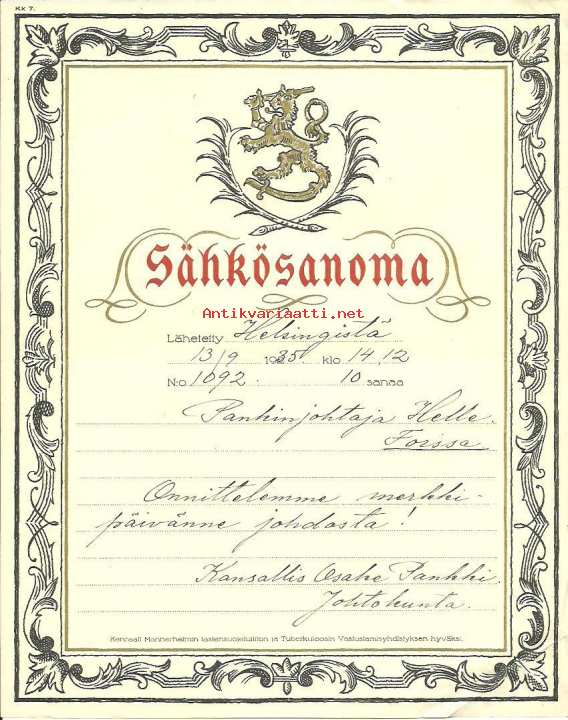 KK 7.
Sähkösanoma
Antikvariaatti.net
Lähetetty Helsingistä
13/9 1935 klo 14.12
N:o 1092. 10 sanaa
Pankinjohtaja Helle.
Forssa.
Onnittelemme merkki-
päivänne johdosta!
Kansallis Osake Pankki.
Johtokunta.
Kenraali Mannerheimin lastensuojeluliiton ja Tuberkuloosin Vastustamisyhdistyksen hyväksi.